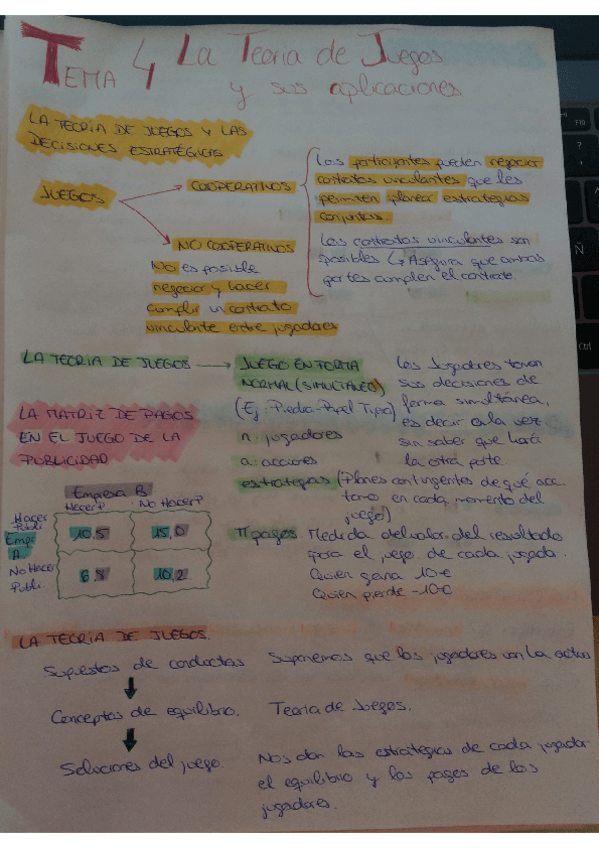 TEMA 4 La Teoría de Juegos
y sus aplicaciones
LA TEORÍA DE JUEGOS Y LAS
DECISIONES ESTRATÉGICAS
JUEGOS
COOPERATIVOS
Los participantes pueden negociar
contratos vinculantes que les
permiten planear estrategias
conjuntas.
Los contratos vinculantes son
posibles ↳ Asegura que ambas
partes cumplen el contrato.
NO COOPERATIVOS
No es posible
negociar y hacer
cumplir un contrato
vinculante entre jugadores
LA TEORÍA DE JUEGOS → JUEGO EN FORMA
NORMAL (SIMULTÁNEO)
(Ej: Piedra-Papel Tijera)
Los Jugadores toman
sus decisiones de
forma simultánea,
es decir a la vez
sin saber que hará
la otra parte
n: jugadores
a: acciones
estrategias (Planes contingentes de qué acc.
tomo en cada momento del
juego)
π pagos. Medida del valor del resultado
para el juego de cada jugada.
Quien gana 10€
Quien pierde -10€
LA MATRIZ DE PAGOS
EN EL JUEGO DE LA
PUBLICIDAD
Empresa B
Hacer P No Hacer P
Hacer
Publi
Empr
A
10,5 15,0
No Hacer
Publi.
6,8 10,2
LA TEORÍA DE JUEGOS.
Supuestos de conductas Suponemos que los jugadores con la
Conceptos de equilibrio. Teoría de Juegos.
Soluciones del juego. Nos dan las estrategias de cada jugador
el equilibrio y los pagos de los
jugadores.
P10
?
Ñ
Ctrl